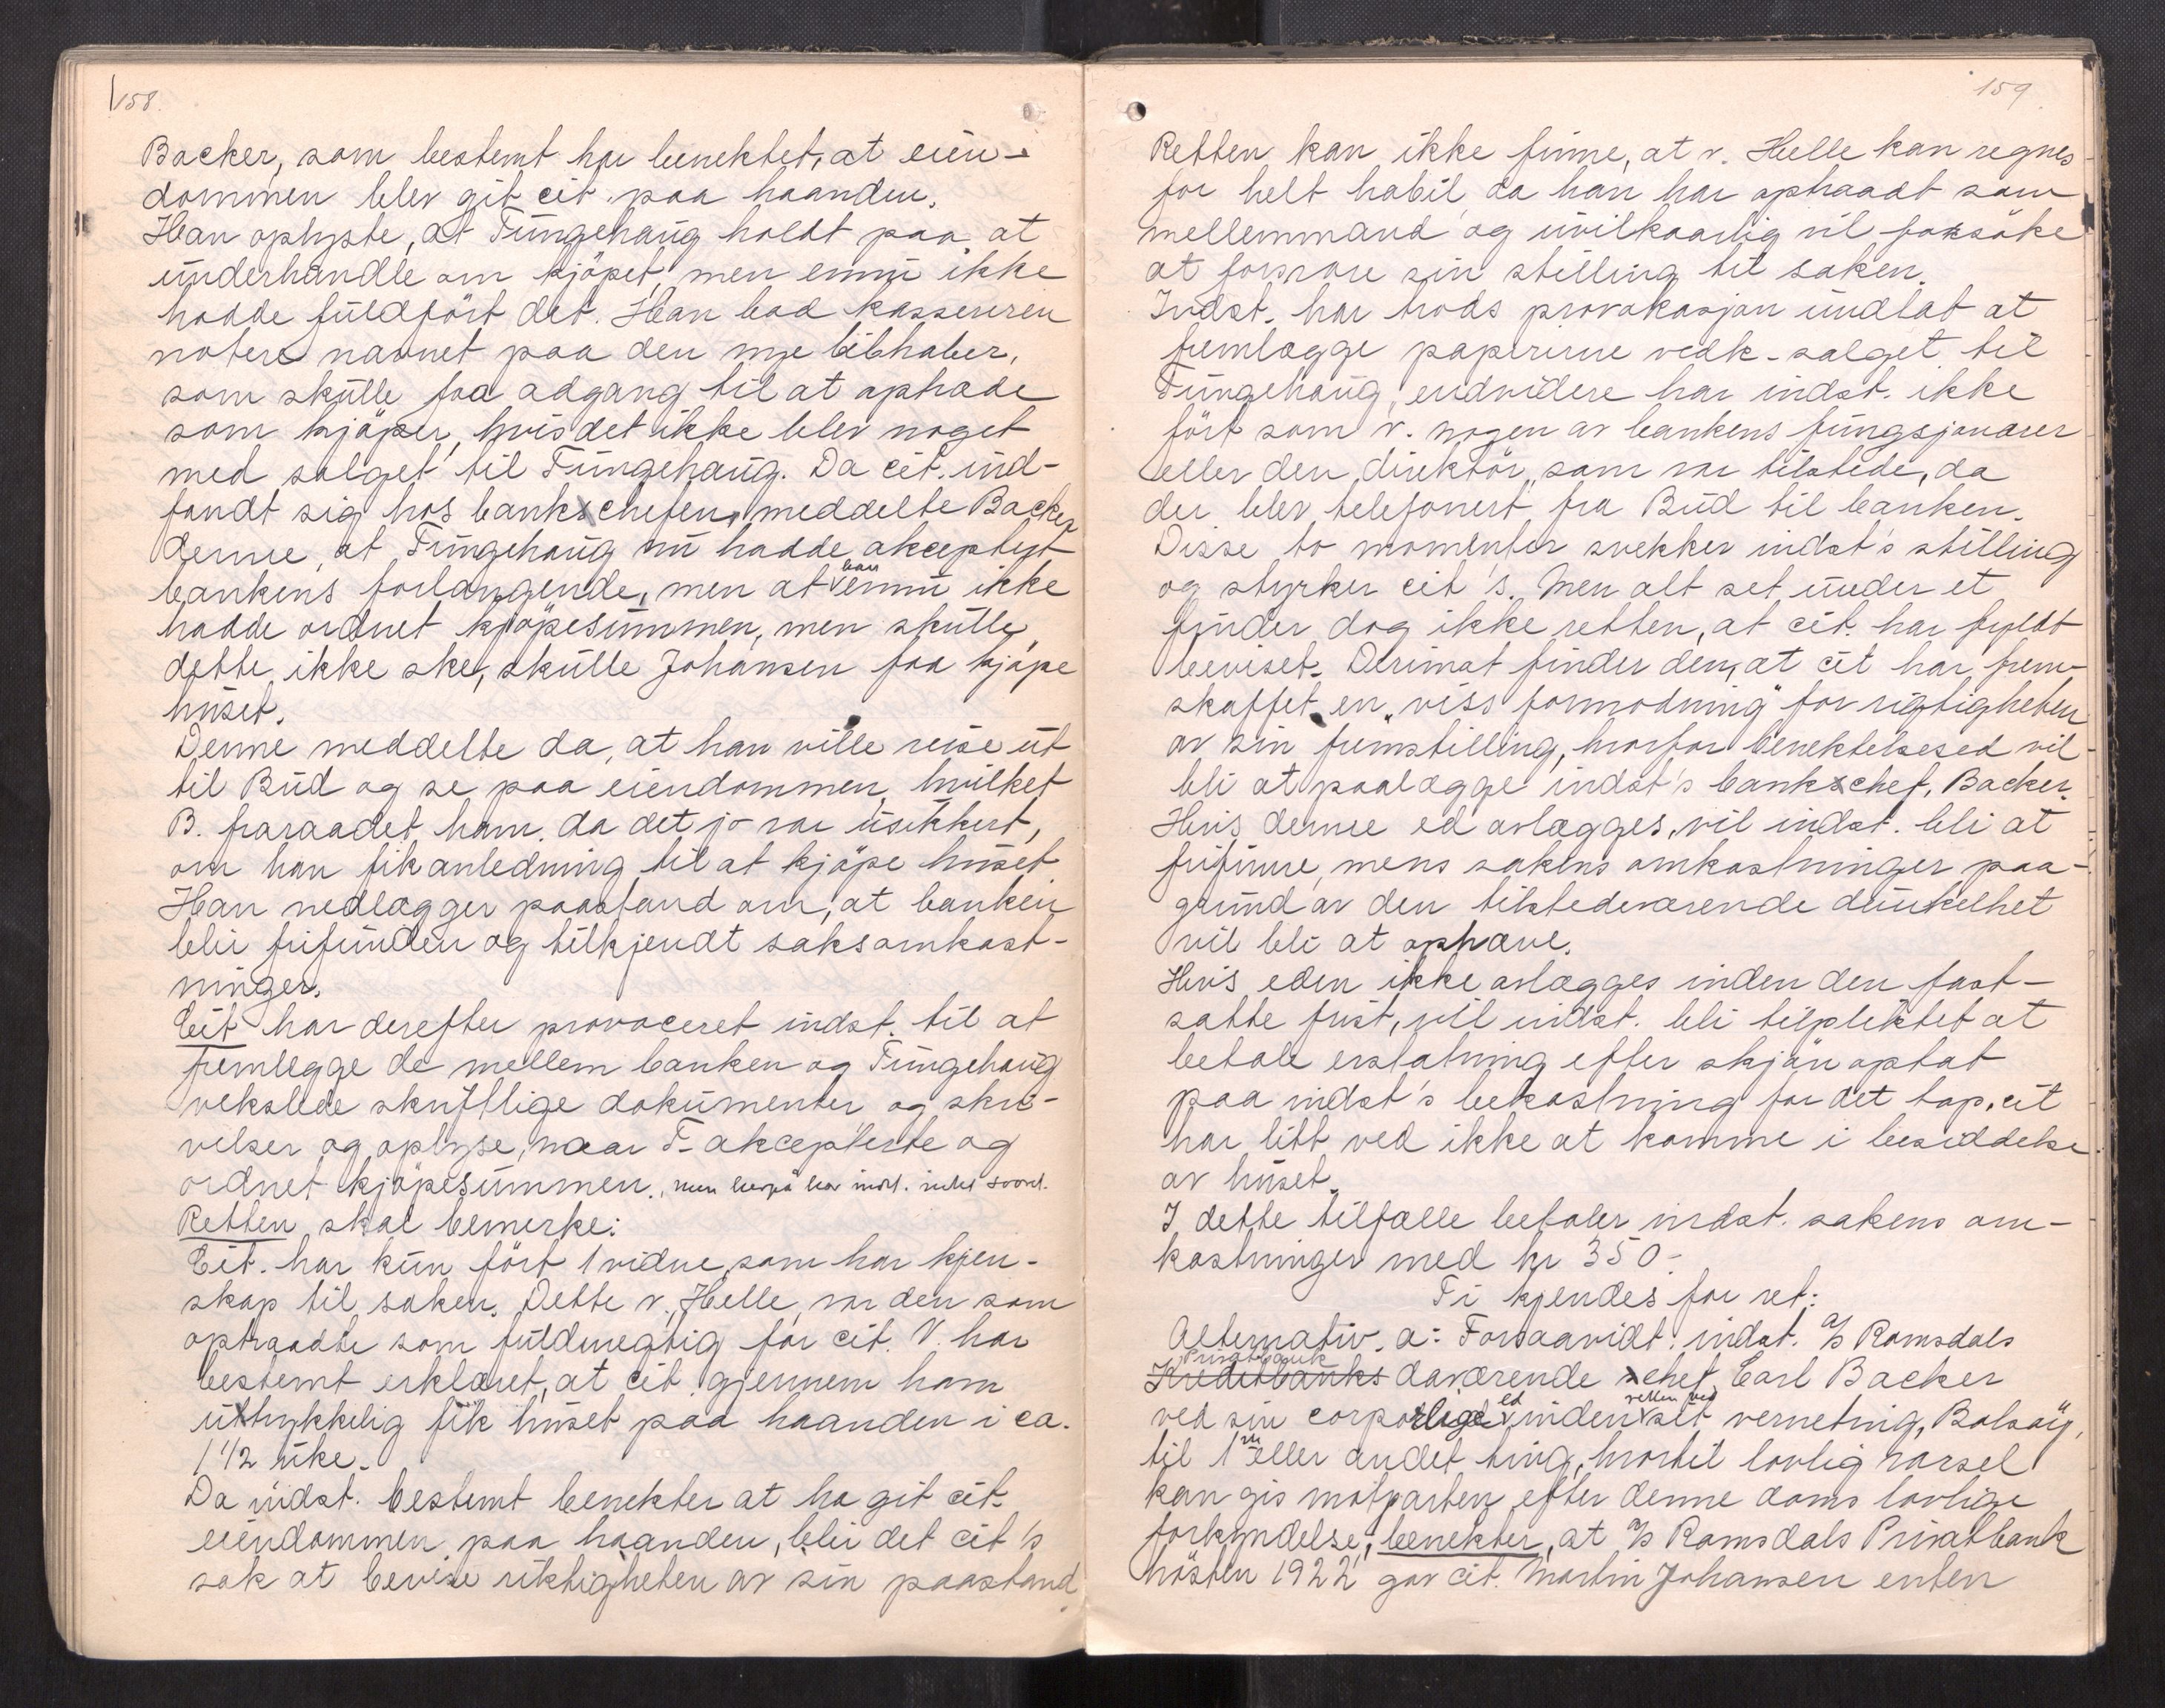 158.
Backer, som bestemt har benektet, at eien-
dommen blev git cit. paa haanden.
Han oplyste, at Tungehaug holdt paa at
underhandle om kjöpet, men ennu ikke
hadde fuldfört det. Han bad kassereren
notere navnet paa den nye libhaber,
som skulle faa adgang til at optrade
som kjöper, hvis det ikke blev noget
med salget til Tungehaug. Da cit. ind-
fandt sig hos bankchefen, meddelte Backer
denne, at Tungehaug nu hadde akceptert
bankens forlangende, men at han ennu ikke
hadde ordnet kjöpesummen, men skulle
dette ikke ske, skulle Johansen faa kjöpe
huset.
Denne meddelte da, at han ville reise ut
til Bud og se paa eiendommen, hvilket
B. fraraadet ham, da det jo var usikkert,
om han fik anledning til at kjöpe huset.
Han nedlægger paastand om, at banken
blir frifunden og tilkjendt saksomkost-
ninger.
Cit har derefter provoceret indst. til at
fremlegge de mellem banken og Tungehaug
vekslede skriftlige dokumenter og skri-
velser og oplyse, naar T. akcepterte og
ordnet kjöpesummen., men herpå har indst. intet svart.
Retten skal bemerke:
Cit. har kun fört 1 vidne, som har kjen-
skap til saken. Dette v., Helle, var den som
optraadte som fuldmegtig for cit. V. har
bestemt erklæret, at cit. gjennem ham
uttrykkelig fik huset paa haanden i ca.
1 1/2 uke.
Da indst. bestemt benekter at ha git cit.
eiendommen paa haanden, blir det cit's
sak at bevise riktigheten av sin paastand.
159.
Retten kan ikke finne, at v. Helle kan regnes
for helt habil, da han har optraadt som
mellemmand og uvilkaarlig vil forsöke
at forsvare sin stilling til saken.
Indst. har trods provokasjon undlat at
fremlægge papirerne vedk. salget til
Tungehaug, endvidere har indst. ikke
fört som v. nogen av bankens fungsjonærer
eller den direktör, som var tilstede, da
der blev telefonert fra Bud til banken.
Disse to momenter svekker indst's stilling
og styrker cit's. Men alt set under et
finder dog ikke retten, at cit. har fyldt
beviset. Derimot finder den, at cit har frem-
skaffet en "viss formodning" for rigtigheten
av sin fremstilling, hvorfor benektelsesed vil
bli at paalægge indst's bankchef, Backer.
Hvis denne ed avlægges, vil indst. bli at
frifinne, mens sakens omkostninger paa-
grund av den tilstedeværende dunkelhet
vil bli at ophæve.
Hvis eden ikke avlægges inden den fast-
satte frist, vil indst. bli tilpliktet at
betale erstatning efter skjön optat
paa indst's bekostning for det tap, cit
har litt ved ikke at komme i besiddelse
av huset.
I dette tilfælle betaler indst. sakens om-
kostninger med kr 350.-
Ti kjendes for ret:
Alternativ. a: Forsaavidt indst. a/s Romsdals
Privatbank
Kreditbanks daværende chef, Carl Backer
ved sin corporlige ed inden retten ved sit vernetning, Bolsöy,
til 1ste eller andet ting, hvortil lovlig varsel
kan gis motparten efter denne doms lovlige
forkyndelse, benekter, at a/s Romsdals Privatbank
hösten 1922 gav cit. Martin Johansen enten